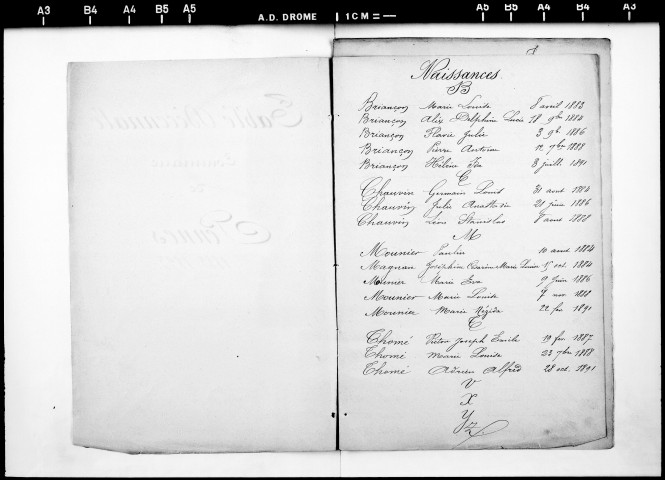 A3 B4 A4 B5 A5 A.D. DROME 1CM A5 B5 A4 B4 A3
Naissances
B
Briançon Marie Louise 8 avril 1883
Briançon Alix Delphine Lucie 18 9bre 1884
Briançon Flavie Julie 3 9b 1886
Briançon Pierre Antoine 12 7bre 1888
Briançon Hélène 8 juill. 1891
C
Chauvin Germain Louis 31 aout 1884
Chauvin Julie 21 juin 1886
Chauvin Léon Stanislas 8 aout 1888
M
Mounier Paulin 10 aout 1884
Magnan Joséphine Marie Louise 15 oct. 1884
Mounier Marie Eva 9 juin 1886
Mounier Marie Louise 7 nov. 1888
Mounier Marie 22 fev 1891
T
Thomé Joseph Emile 19 fev. 1887
Thomé Marie Louise 23 7bre 1888
Thomé Adrien Alfred 28 oct. 1891
V
X
Y
Z